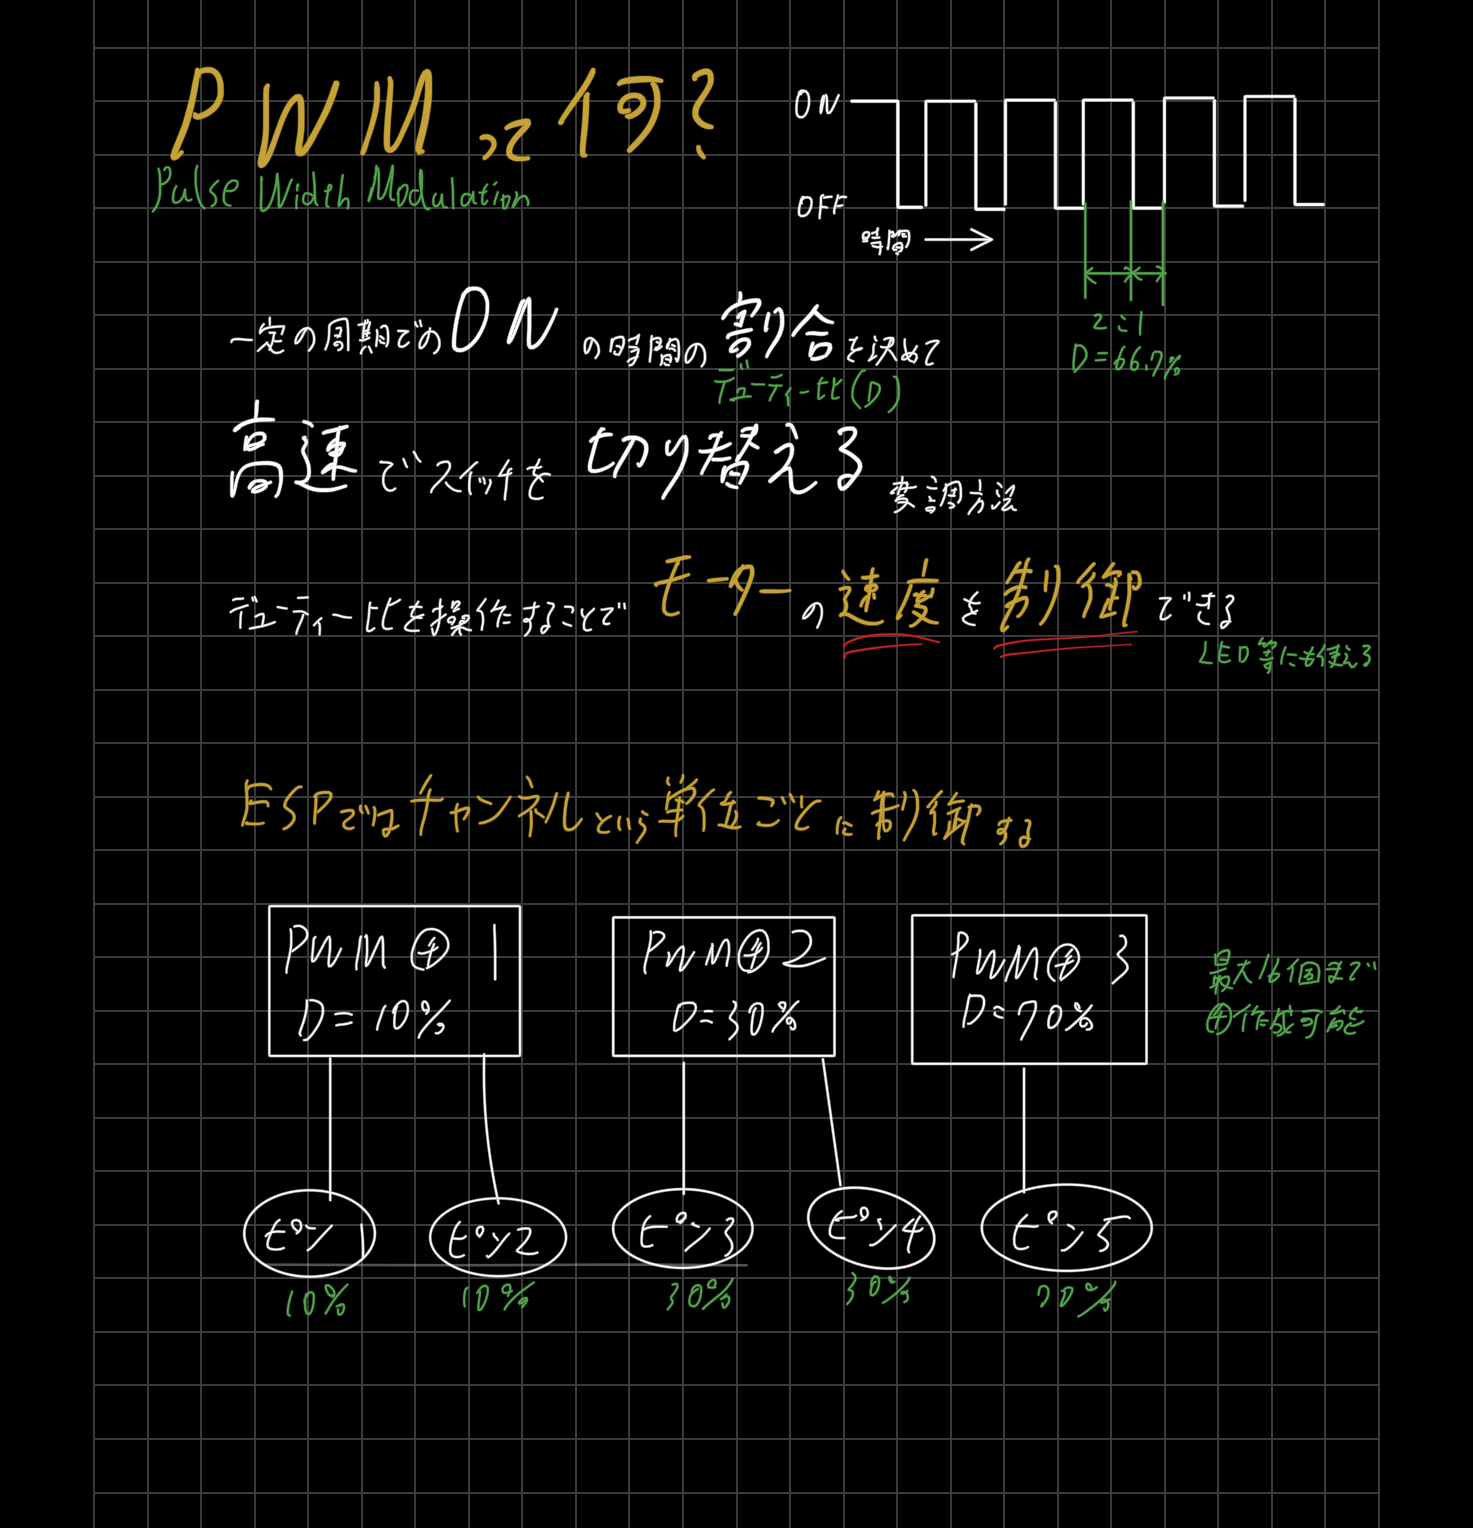 PWMって何?
Pulse Width Modulation
ON
OFF
時間
2:1
D=66.7%
一定の周期でのONの時間の割合を決めて
デューティー比(D)
高速でスイッチを切り替える変調方法
デューティー比を操作することでモーターの速度を制御できる
LED等にも使える
ESPではチャンネルという単位ごとに制御する
PWM㋠1
D=10%
PWM㋠2
D=30%
PWM㋠3
D=70%
最大16個まで
㋠作成可能
ピン1
ピン2
ピン3
ピン4
ピン5
10%
10%
30%
30%
70%